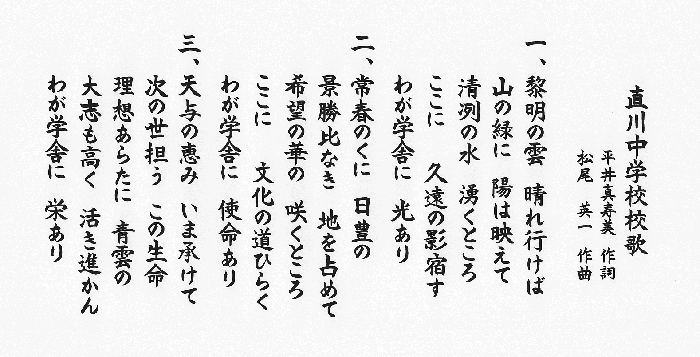 直川中学校校歌
平井真寿美 作詞
松尾 英一 作曲
一、黎明の雲 晴れ行けば
山の緑に 陽は映えて
清冽の水 湧くところ
ここに 久遠の影宿す
わが学舎に 光あり
二、常春のくに 日豊の
景勝比なき 地を占めて
希望の華の 咲くところ
ここに 文化の道ひらく
わが学舎に 使命あり
三、天与の恵み いま承けて
次の世担う この生命
理想あらたに 青雲の
大志も高く 活き進かん
わが学舎に 栄あり